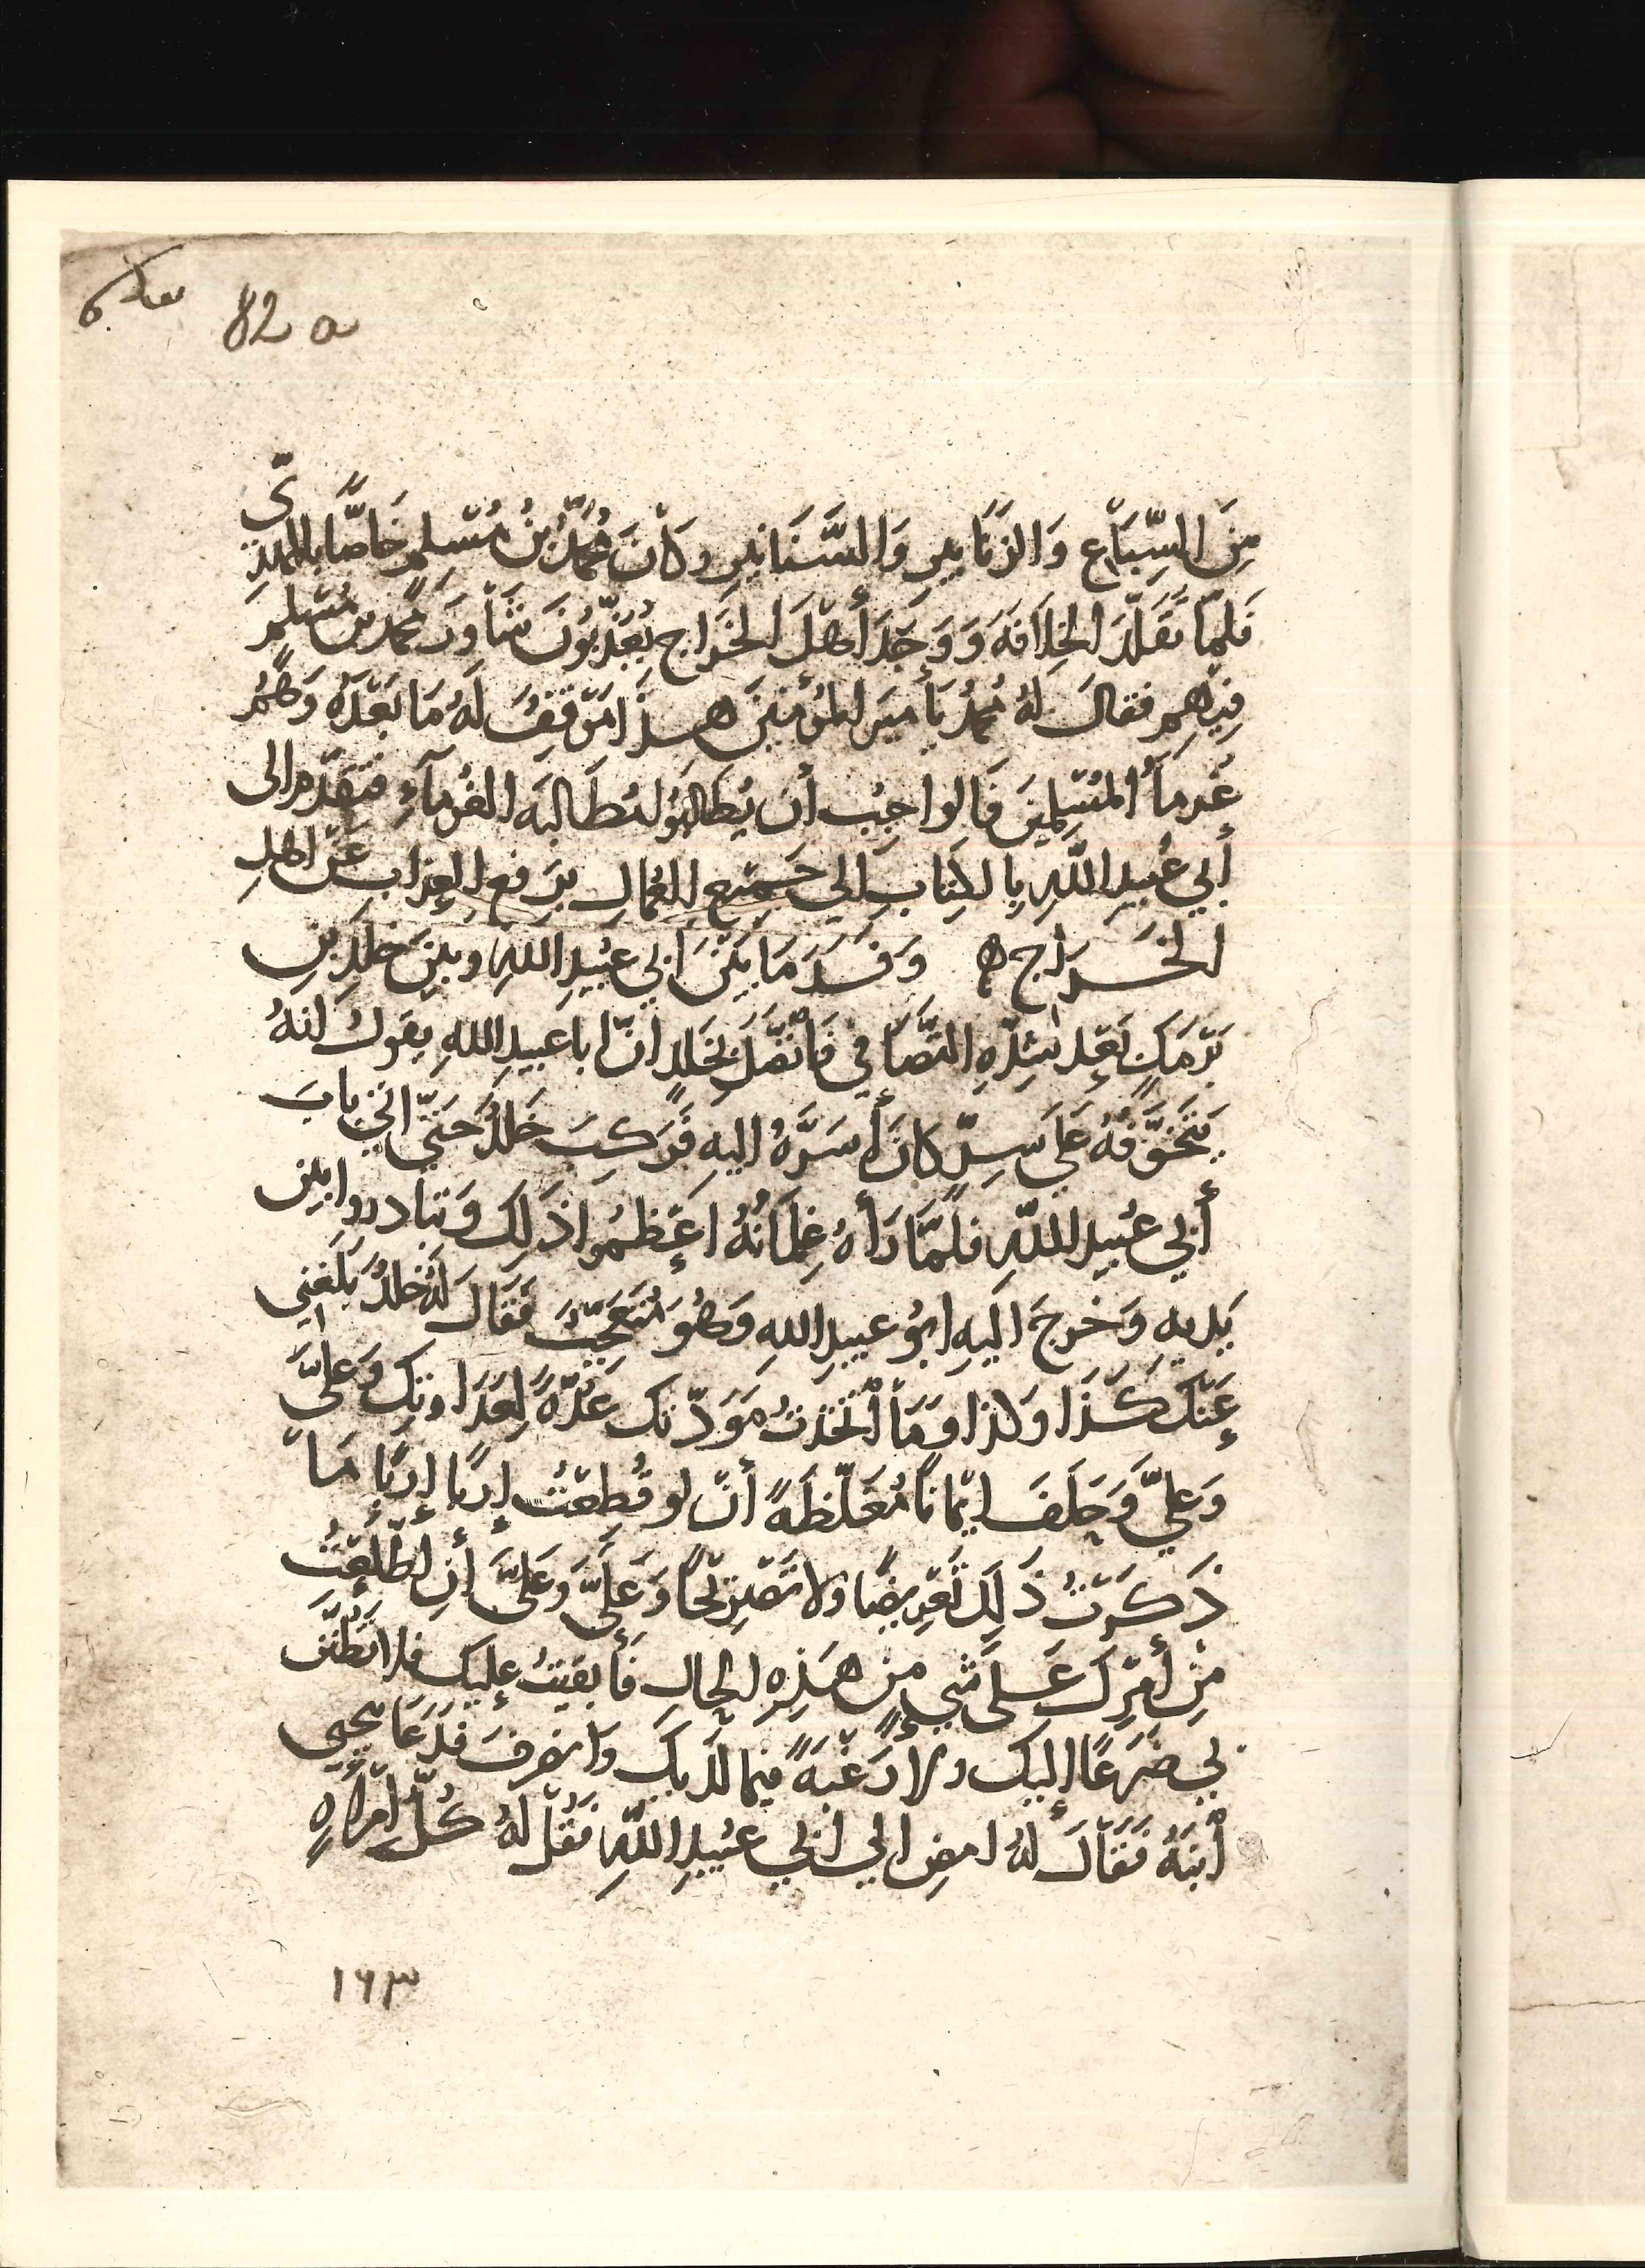 82 a
مِنَ السِّبَاعِ وَالزَنَابِيرِ وَالسَّنَانِيرِ وكَانَ مُحَمَّدُ بْنُ مُسْلِمٍ خَاصًّا بالمَهْدِيّ
فَلمّا تَقَلّدَ الخِلَافَهَ وَوَجَدَ أهْلَ الخَرَاجِ يُعَذّبُونَ شَاوَرَ مُحمّد بن مُسْلِمٍ
فِيهِم فقالَ لهُ مُحمّدُ يَأمِيرَ المُؤمِنِينَ هـذَا مَوْقِفُ لَهُ مَا بَعْدَهُ وَهُمْ
غُرمَآُ المُسْلِمِينَ فَالواجِبُ أن يُطَالبَوُا مُطَالبَهَ الغُرمآءِ فتقَدّم الى
أبي عُبيدِ اللّهِ بِالكِتَابِ الي جَمِيْعِ العُمالِ برَفعِ العَذابِ عَنْ اهلِ
الخَـرَاجِ ه وَفَسَدَ مَا بَيْنَ ابِي عبَيْدِ اللهِ وبينَ خلدِ بنِ
بَرْمَكٍ بَعْدِ شِدّهِ التَّصَافي فَاتّصَلَ بخَلدٍ انّ ابا عبيدِ اللهِ يقولُ انهُ
يَتَخَوَّفهُ عَلَي سِـرٍّ كانَ أسَرَّهُ اليهِ فَركبَ خلدٌ حَتّيَ اتي بابَ
أبي عُبيدِ اللّهِ فلمَّا رَأهُ غِلمَانُهُ اعْظمُوا ذَلِكَ وَتبادروا بين
يَديهِ وَخرجَ اليَهِ ابوُ عبيدِ اللهِ وَهُوَ مُتعَجّبٌ فقَالَ لهُ خلدٌ بَلَغنِي
عَنْكَ كَذَا وَكذا وَمَا اتّخَذتُ مَوَدّتكَ عُدّةً لِعَدَاوتِكَ وَعليَّ
وَعليّ وَحلَفَ ايْمَانًا مُغَلّظةً أنْ لو قُطِعْتُ إربًا إربًا مَا
ذَكرْتُ ذَلِكَ تَعْرِيضًا ولا تصْرِيحًا وَعليَّ وَعليَّ أنِ اطّلَعْتُ
مِنْ أمْرِكَ عَـلَى شَيءٍ مِنْ هـذِهِ الحَالِ فَأبقيْتُ عليكَ فلا تَظُنَّ
بِي ضَرَعًا إليك ولا رَغبَةً فيما لدَيكَ وَانصَرفَ فدَعَا يَحيى
ابْنَهُ فَقَالَ لهُ امضِ الي ابي عبَيدِ اللّهِ فقُلْ لهُ كُلُّ امْرَأهٍ
١٦٣